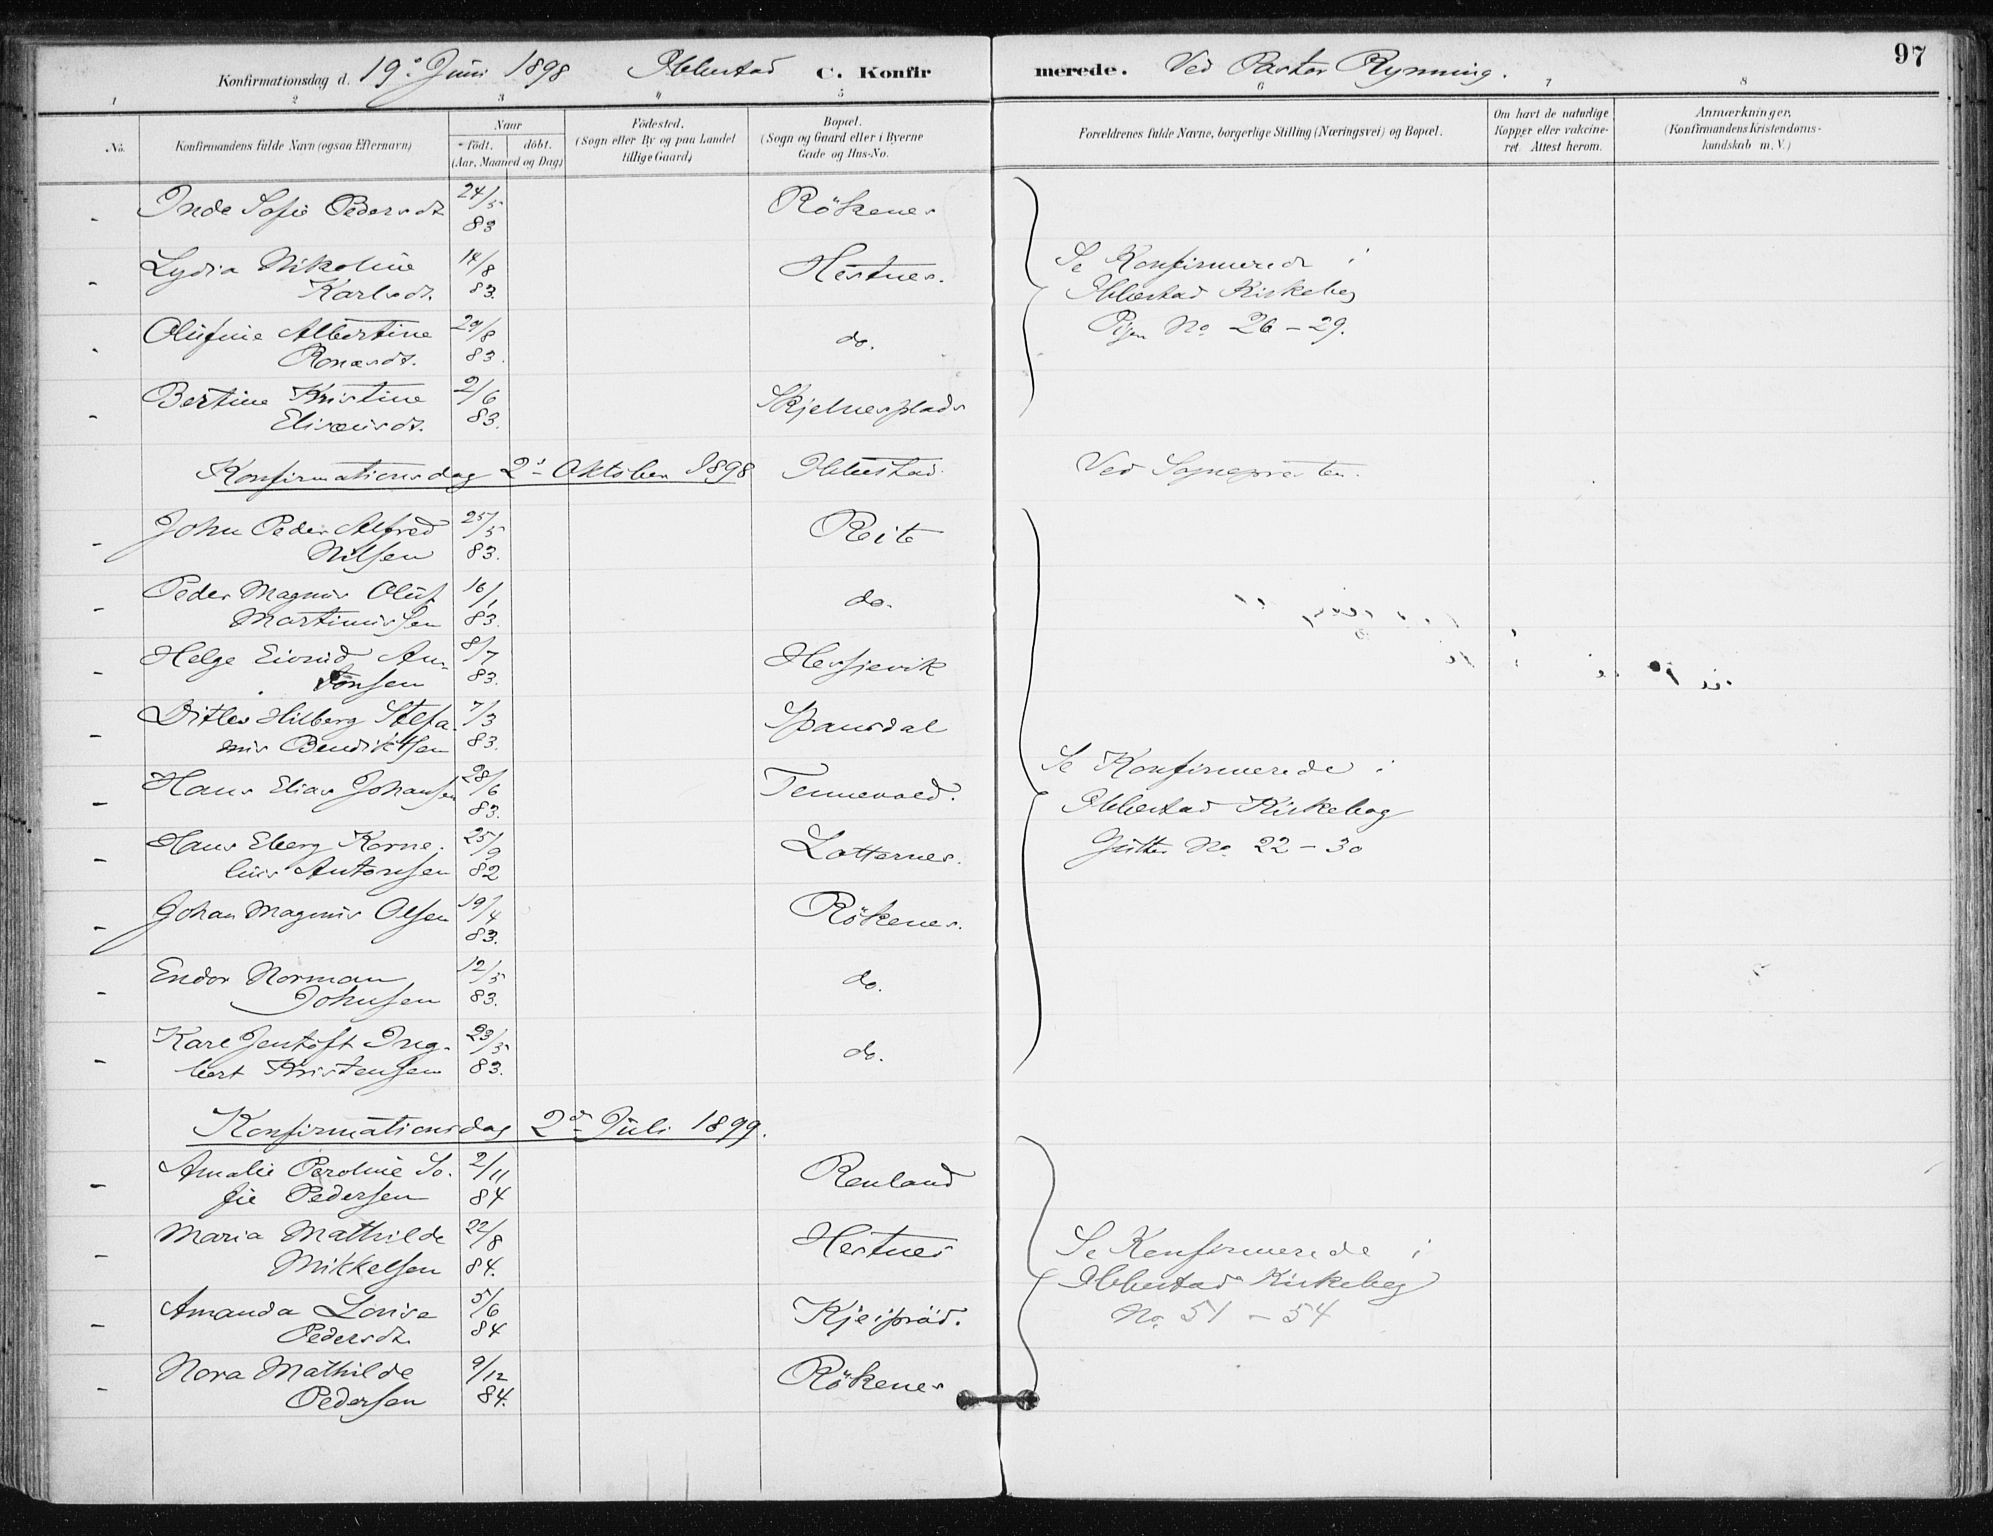 97
Konfirmationsdag d. 19de Juni 1898 Ibbestad C. Konfirmerede. Ved Pastor Rynning.
1 2 3 4 5 6 7 8
No. Konfirmandens fulde Navn (ogsaa Efternavn) Naar födt. döbt. (Aar, Maaned og Dag) Födested, (Sogn eller By og paa Landet tillige Gaard) Bopæl. (Sogn og Gaard eller i Byerne Gade og Hus-No. Forældrenes fulde Navne, borgerlige Stilling (Næringsvei) og Bopæl. Om havt de naturlige Kopper eller vakcineret. Attest herom. Anmærkninger. (Konfirmandens Kristendomskundskab m. V.)
- Inde Sofie Pedersdt. 24/5 83 Rökenes
- Lydia Nikoline Karlsdt. 14/8 83. Hestnes.
- Olufine Albertine Ronæsdt. 29/8 83. do.
- Bertine Kristine Elisæusdt. 2/6 83. Skjelnesplads
Se Konfirmerede i
Ibbestad Kirkebog
Piger No. 26-29.
Konfirmationsdag 2den Oktober 1898 Ibbestad. Ved Sognepresten.
- John Peder Alfred Nilsen 25/5 83. Reite
- Peder Magnus Oluf Martinussen 16/1 83. do.
- Helge Eivind Antonsen 8/7 83. Hersjevik
- Ditlev Hilberg Stefanus Bendiktsen 7/3 83. Spansdal
- Hans Elias Johansen 28/6 83. Tennevold.
- Hans Eberg Kornelius Antonsen 25/9 82 Lotternes.
- Johan Magnus Olsen 19/4 83. Rökenes.
- Endor Norman Johnsen 12/5 83. do.
- Karl Jentoft Ingbert Kristensen 23/5 83. do.
Se Konfirmerede i
Ibbestad Kirkebog
Gutter No. 22-30
Konfirmationsdag 2den Juli 1899.
- Amalie Peroline Sofie Pedersen 2/11 84 Renland
- Maria Mathilde Mikkelsen 22/8 84. Hestnes
- Amanda Lovise Pedersdt. 5/6 84 Kjeipröd.
- Nora Mathilde Pedersen 9/12 84. Rökenes
Se Konfirmerede i
Ibbestads Kirkebog
No. 51-54